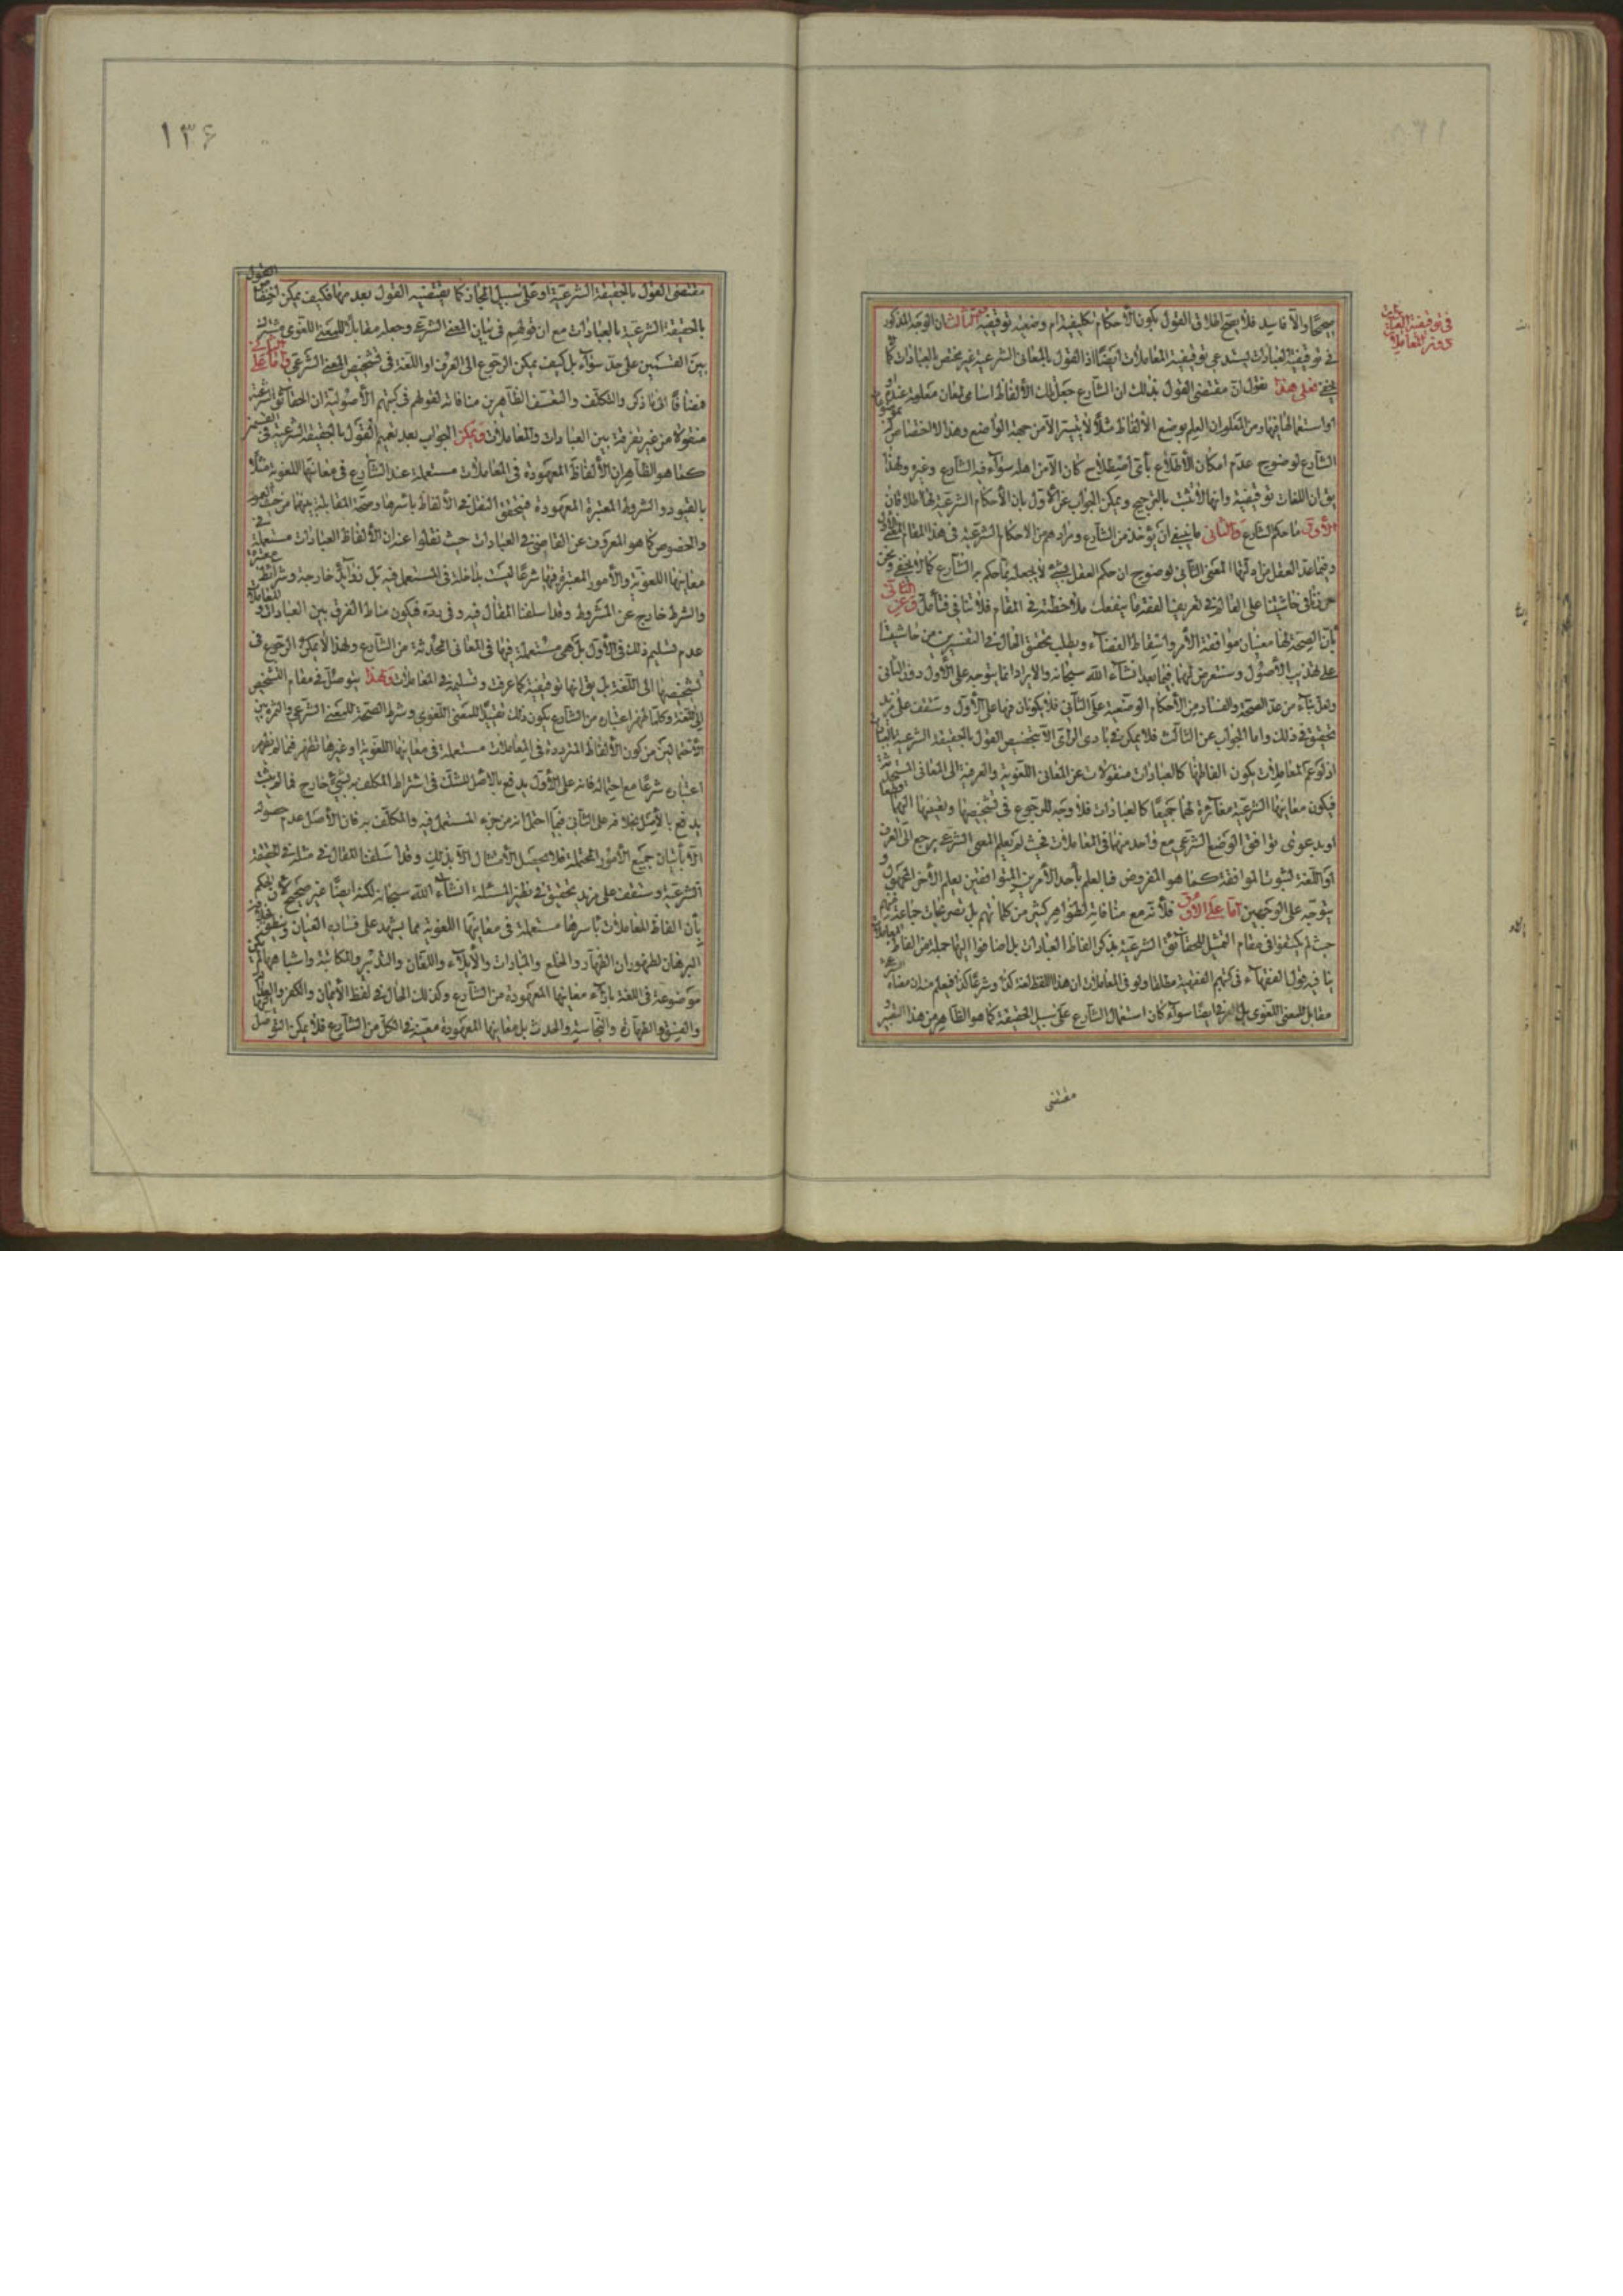 صحيحًا والا فاسد فلا يصح اطلاق القول بكون الأحكام تكليفية ام وضعية توقيفية الثالث ان الوجه المذكور
في توقيفية العبادات يستدعي توقيفية المعاملات ايضًا اذ القول بالمعاني الشرعية غير مختص بالعبادات كما
فعلى هذا نقول ان مقتضى القول بذلك ان الشارع جعل تلك الألفاظ اسامي لمعان معلومة عنده
او استعمالها فيها ومن المعلوم ان العلم بوضع الألفاظ مثلًا لا يتيسر الا من جهة الواضع وهذا لا اختصاص
الشارع لوضوح عدم امكان الأطلاع بأي اصطلاح كان الا من اهله سواء فيه الشارع وغيره ولهذا
يق ان اللغات توقيفية وانها لا تثبت بالترجيح ويمكن الجواب عن الأول بان الأحكام الشرعية لها اطلاقان
الأول ما حكم الشارع والثاني ما ينبغي ان يؤخذ من الشارع ومرادهم من الاحكام الشرعية في هذا المقام
وفيما عد العقل من ادلتها المعنى الثاني لوضوح ان حكم العقل بشيء لا يجعله مما حكم به الشارع كما لا يخفى ونحن
في حاشيتنا على في تعريف الفقه ما ينفعك ملاحظته في المقام فلا تنافي فتأمل وعن الثاني
بأن الصحة لها معنيان موافقة الأمر واسقاط القضاء ويطلب تحقيق الحال في التفسيرين من حاشيتنا
على تهذيب الأصول وسنتعرض لهما فيما بعد انشاء الله سبحانه والايراد انما يتوجه على الأول دون الثاني
ولعل بناء من عد الصحة والفساد من الأحكام الوضعية على الثاني فلا يكونان منها على الأول وستقف على مزيد
تحقيق في ذلك واما الجواب عن الثالث فلا يمكن في بادي الرأي الا بتخصيص القول بالحقيقة الشرعية بالعبادات
اذ لو عم المعاملات بكون الفاظها كالعبادات منقولات عن المعاني اللغوية والعرفية الى المعاني المستحدثة
فيكون معانيها الشرعية مغايرة لهما جميعًا كالعبادات فلا وجه للرجوع في تشخيصها وتعيينها اليهما
او بدعوى توافق الوضع الشرعي مع واحد منهما في المعاملات فحيث لم يعلم المعنى الشرعي يرجع الى العرف
او اللغة لثبوت الموافقة كما هو المفروض فبالعلم بأحد الأمرين المتوافقين يعلم الأخر المجهول و
يتوجه على الوجهين اما على الأول فلأنه مع منافاته لظواهر كثير من كلماتهم بل تصريحات جماعة منهم
حيث لم يكتفوا في مقام التمثيل للحقائق الشرعية بذكر الفاظ العبادات بل اضافوا اليها جملة من الفاظ المعاملات
ينافيه قول الفقهاء في كتبهم الفقهية مطلقا ولو في المعاملات ان هذا اللفظ لغة كذا وشرعًا كذا فيعلم منه ان معناه الشرعي
مقابل للمعنى اللغوي بل العرفي ايضًا سواء كان استعمال الشارع على سبيل الحقيقة كما هو الظاهر من هذا التعبير و
مقتضى
في توقيفية العبادات
دون المعاملات
١٣۶
مقتضى القول بالحقيقة الشرعية او على سبيل المجاز كما يقتضيه القول بعدمها فكيف يمكن اختصاص القول
بالحقيقة الشرعية بالعبادات مع ان قولهم في بيان المعنى الشرعي وجعله مقابلًا للمعنى اللغوي مشترك
بين القسمين على حد سواء بل كيف يمكن الرجوع الى العرف او اللغة في تشخيص المعنى الشرعي واما على الثاني
فمضافًا الى ما ذكر والتكلف والتعسف الظاهرين منافاته لقولهم في كتبهم الأصولية ان الحقائق الشرعية
منقولة من غير تفرقة بين العبادات والمعاملات ويمكن الجواب بعد تعميم القول بالحقيقة الشرعية في القسمين
كما هو الظاهر ان الألفاظ المعهودة في المعاملات مستعملة عند الشارع في معانيها اللغوية مثلًا
بالقيود والشروط المعتبرة المعهودة فيتحقق النقل في الألفاظ بأسرها وصحة المقابلة بينهما من حيث العموم
والخصوص كما هو المعروف عن القاضي في العبادات حيث نقلوا عنه ان الألفاظ العبادات مستعملة في
معانيها اللغوية والأمور المعتبرة فيها شرعًا ليست بداخلة في المستعمل فيه بل زوائد خارجة وشرائط معتبرة
والشرط خارج عن المشروط وقد اسلفنا المقال فيه وفي رده فيكون مناط الفرق بين العبادات والمعاملات
عدم تسليم ذلك في الأول بل هي مستعملة فيها في المعاني المحدثة من الشارع ولهذا لا يمكن الرجوع في
تشخيصها الى اللغة بل يق انها توقيفية كما عرفت وتسليمه في المعاملات ولهذا يتوصل في مقام التشخيص
الى اللغة وكلما ظهر اعتباره من الشارع يكون ذلك تقييدًا للمعنى اللغوي وشرط الصحة للمعنى الشرعي والثمرة بين
الأحتمالين من كون الألفاظ المترددة في المعاملات مستعملة في معانيها اللغوية او غيرها تظهر فيما لم يظهر
اعتباره شرعًا مع احتماله فانه على الأول يدفع بالأصل للشك في اشتراط المكلف به بشيء خارج فما لم يثبت
يدفع بالأصل بخلافه على الثاني فيما احتمل انه من جزء المستعمل فيه والمكلف به فان الأصل عدم حصوله
الا بأتيان جميع الأمور المحتملة فلا يحصل الأمتثال الا بذلك وقد اسلفنا المقال في مثله في الحقيقة
الشرعية وستقف على مزيد تحقيق في نظير المسئلة انشاء الله سبحانه لكنه ايضًا غير صحيح لأن الحكم
بأن الفاظ المعاملات بأسرها مستعملة في معانيها اللغوية مما يشهد على فساده العيان وينطق
البرهان لظهور ان الظهار والخلع والمبارات والأيلاء واللعان والتدبير والمكاتبة واشباهها لم يكن
موضوعة في اللغة بازاء معانيها المعهودة من الشارع وكذلك الحال في لفظ الأيمان والكفر والعدالة
والفسق والطهارة والنجاسة والحدث بل معانيها المعهودة معينة في الكل من الشارع فلا يمكن التوصل